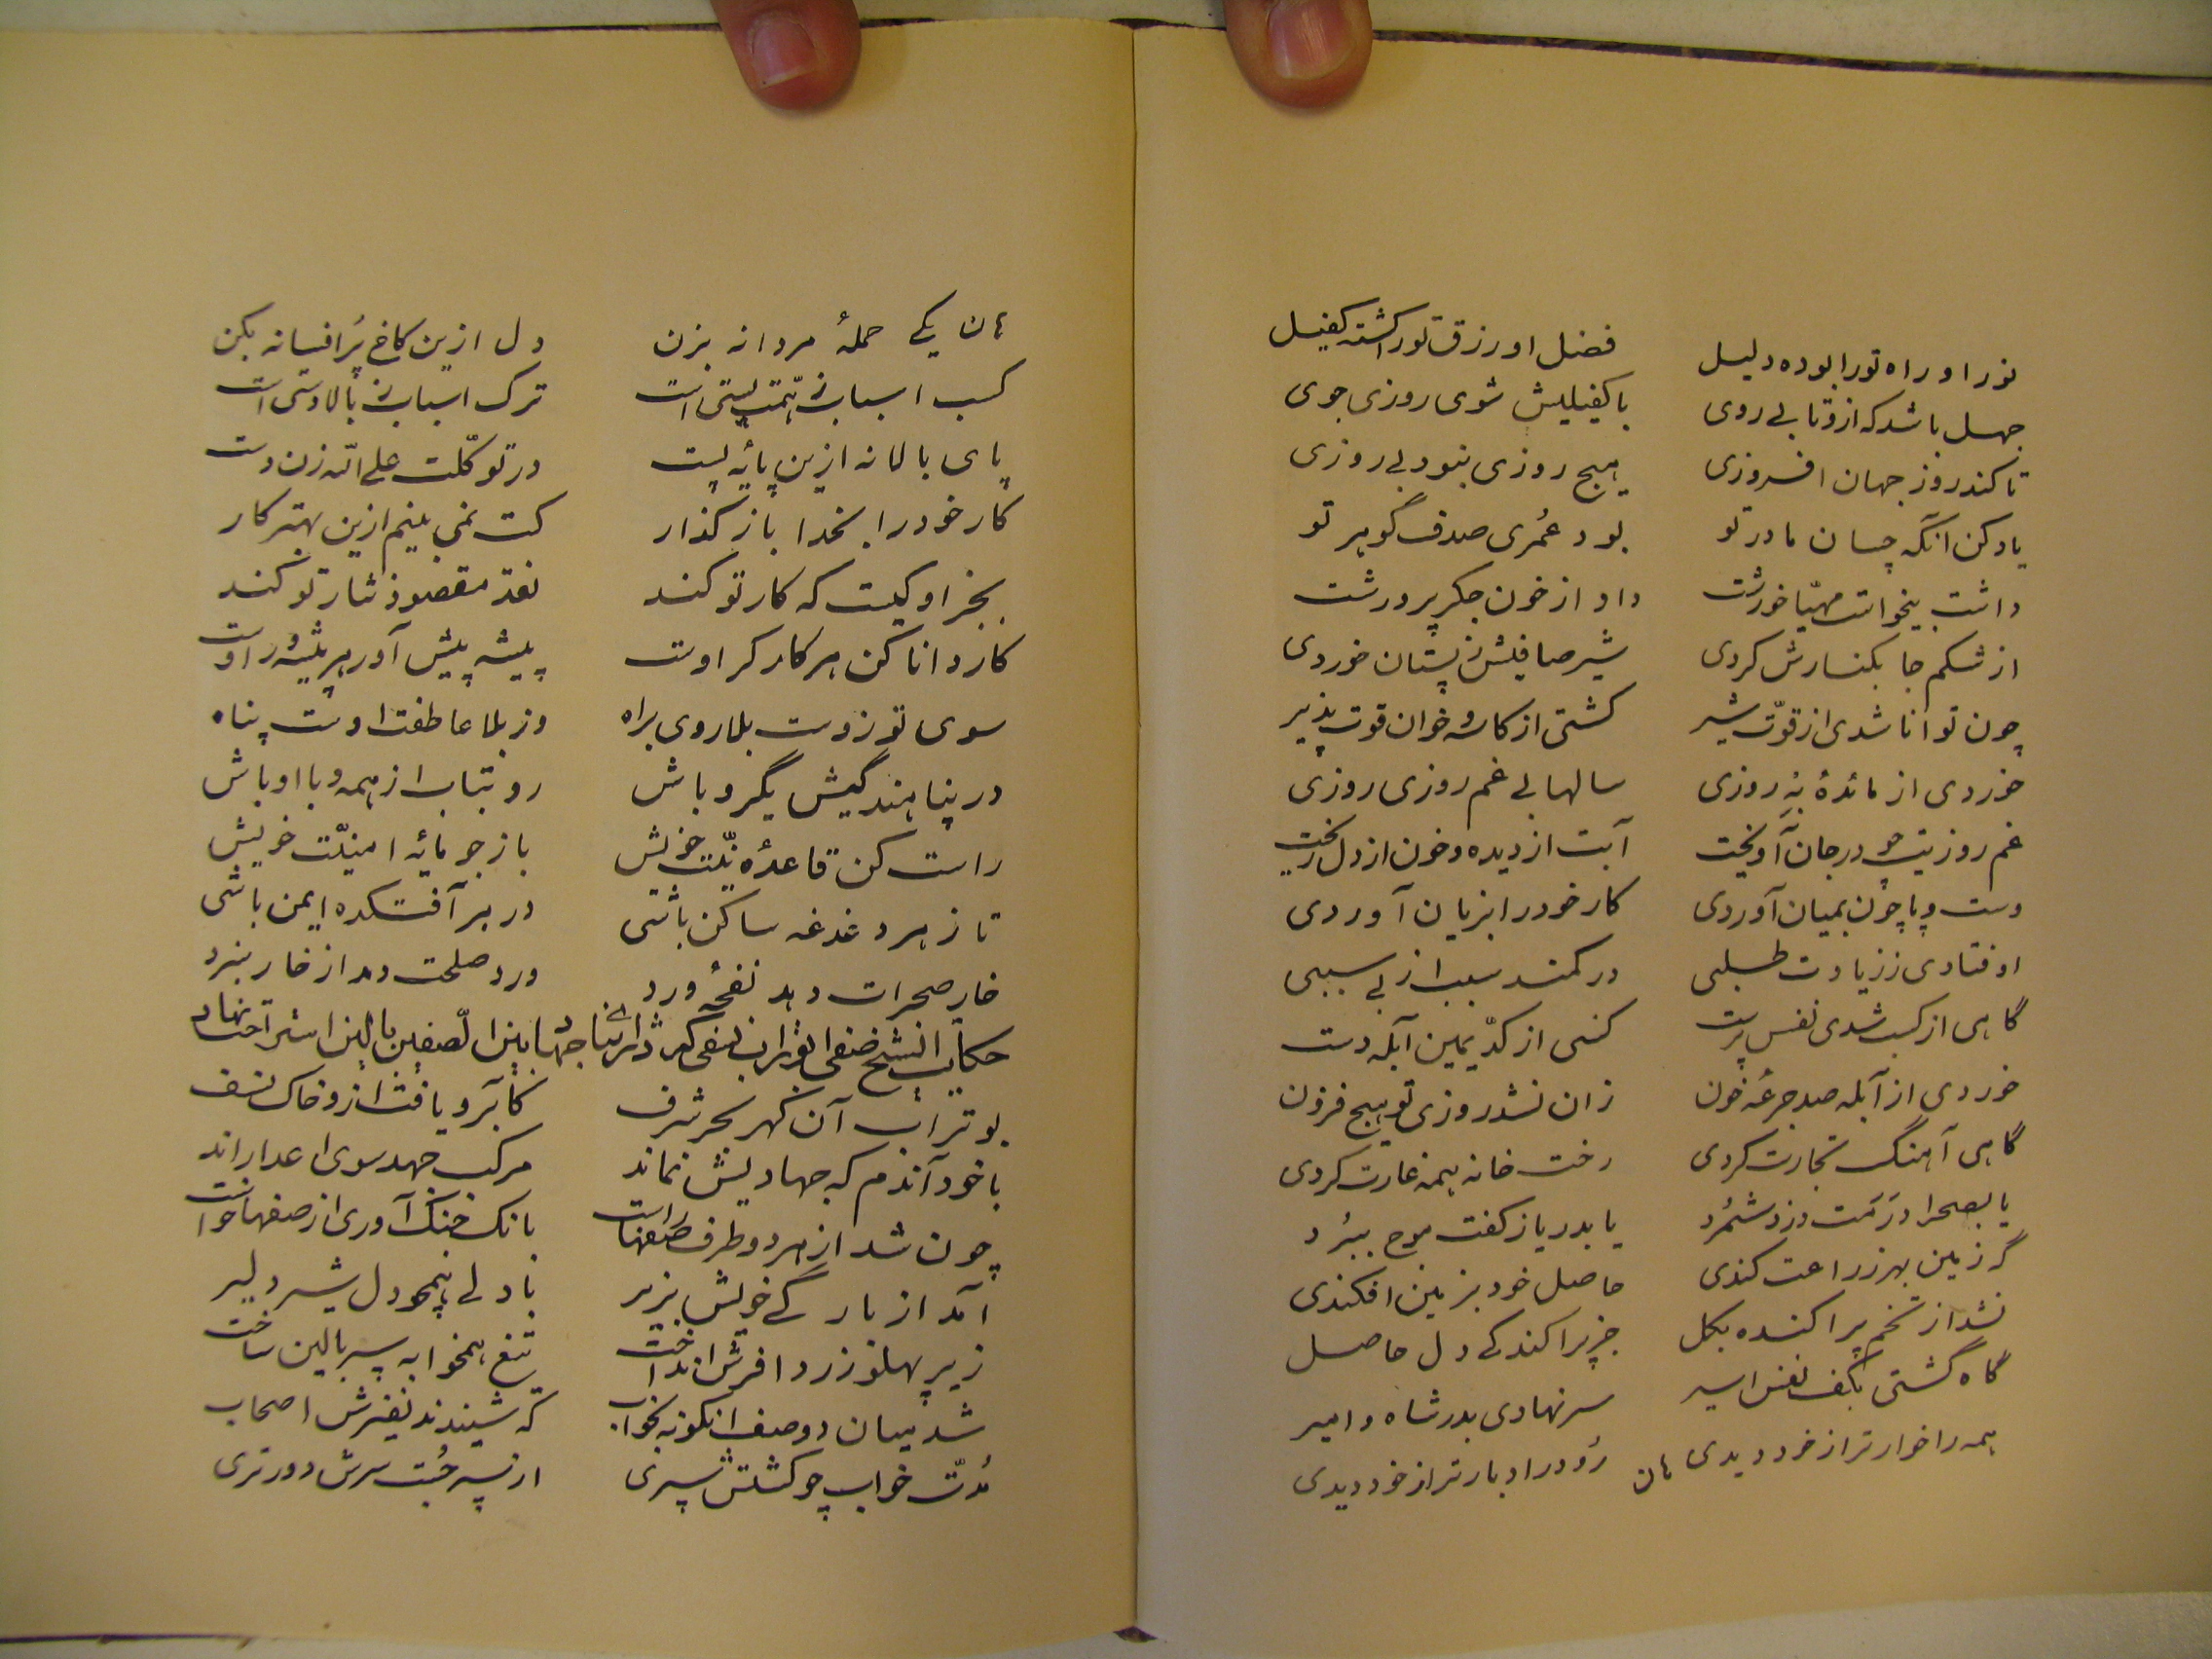 نور او راه تورا بوده دلیل فضل او رزق تورا گشته کفیل
جهل باشد که ازو تا بی روی با کفیلیش شوی روزی جوی
تا کند روز جهان افروزی هیچ روزی نبود بی روزی
یاد کن آنکه چسان مادر تو بود عُمری صدف گوهر تو
داشت بیخواست مهیّا خورشت داد از خون جگر پرورشت
از شکم جا بکنارش کردی شیر صافیش ز پستان خوردی
چون توانا شدی از قوّت شیر گشتی از کاسه و خوان قوت پذیر
خوردی از مائدهٔ به روزی سالها بی غم روزی روزی
غم روزیت چو در جان آویخت آبت از دیده و خون از دل ریخت
دست و پا چون بمیان آوردی کار خود را بزیان آوردی
اوفتادی ز زیادت طلبی در کمند سبب از بی سببی
گاهی از کسب شدی نفس پرست کنسی از کدّ یمین آبله دست
خوردی از آبله صد جرعهٔ خون زان نشد روزی تو هیچ فزون
گاهی آهنگ تجارت کردی رخت خانه همه غارت کردی
یا بصحرا درَمت دزد شمُرد یا بدریا ز کفت موج ببُرد
گر زمین بهر زراعت کندی حاصل خود بزمین افکندی
نشد از تخم پراکنده بگل جز پراکندگی دل حاصل
گاه گشتی بکف نفس اسیر سر نهادی بدر شاه و امیر
همه را خوارتر از خود دیدی رُو در ادبارتر از خود دیدی
هان
هان یکی حملهٔ مردانه بزن دل ازین کاخ پُر افسانه بکن
کسب اسباب ز همّت پستی است ترک اسباب ز بالادستی است
پای بالا نه ازین پایهٔ پست در توکّلت علی الله زن دست
کار خود را بخدا باز گذار کت نمی بینم ازین بهتر کار
بجز او کیست که کار تو کند نقد مقصود نثار تو کند
کار دانا کن هر کارگر اوست پیشه پیش آور هر پیشه ور اوست
سوی تو زوست بلا روی براه وز بلا عاطفت اوست پناه
در پناهندگیش یگرو باش رو بتاب از همه و با او باش
راست کن قاعدهٔ نیّت خویش باز جو مایهٔ امنیّت خویش
تا ز هر دغدغه ساکن باشی در هر آفتکده ایمن باشی
خار صحرات دهد نفحهٔ ورد ورد صلحت دمد از خار نبرد
حکایت شیخ صفی ابوتراب نسفی که در اثنای جهاد بین الصفین بالین استراحت نهاد
بوتراب آن گهر بحر شرف کابرو یافت ازو خاک نسف
با خود آندم که جهادیش نماند مرکب جهد سوی اعدا راند
چون شد از هر دو طرف صفها راست بانک جنگ آوری از صفها خواست
آمد از بارگی خویش بزیر با دلی همچو دل شیر دلیر
زیر پهلو ز ردا فرش انداخت تیغ همخوابه سپر بالین ساخت
شد میان دو صف انگونه بخواب که شنیدند نفیرش اصحاب
مُدّت خواب چو گشتش سپری از سپر جُست سرش دورتری